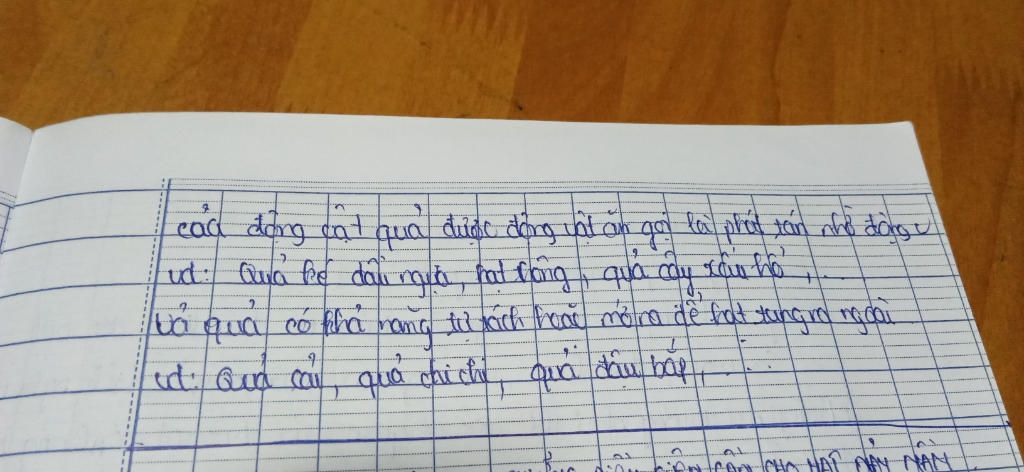 của động vật quả được động vật ăn gọi là phát tán nhờ động v
vd: Quả ké đầu ngựa, hạt thông, quả cây xấu hổ,...
Vỏ quả có khả năng tự tách hoặc mở ra để hạt tung ra ngoài
vd: Quả cải, quả chi chi, quả đậu bắp,....
điều kiện cần CHO HẠT NẢY MẦM